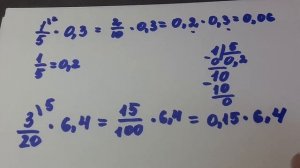 1/5 ^\2 · 0,3 = 2/10 · 0,3 = 0,2 · 0,3 = 0,06
1/5 = 0,2
1 | 5
0 | 0,2
10
- 10
0
3/20 ^\5 · 6,4 = 15/100 · 6,4 = 0,15 · 6,4